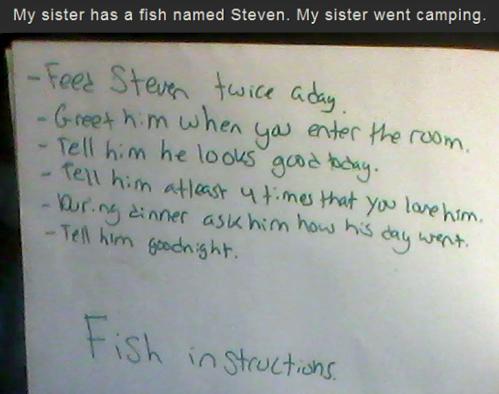 My sister has a fish named Steven. My sister went camping.
- Feed Steven twice a day.
- Greet him when you enter the room.
- Tell him he looks good today.
- Tell him atleast 4 times that you love him.
- During dinner ask him how his day went.
- Tell him goodnight.
Fish instructions.